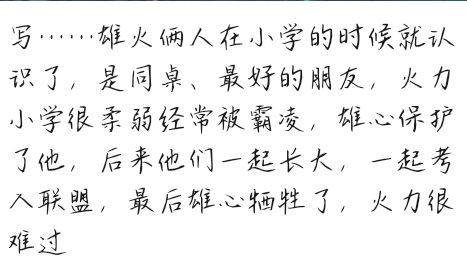 写……雄火俩人在小学的时候就认
识了，是同桌、最好的朋友，火力
小学很柔弱经常被霸凌，雄心保护
了他，后来他们一起长大，一起考
入联盟，最后雄心牺牲了，火力很
难过